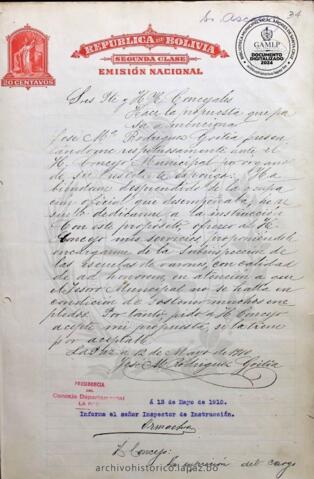 REPUBLICA DE BOLIVIA
SEGUNDA CLASE
EMISIÓN NACIONAL
20 CENTAVOS
GAMLP
DOCUMENTO
DIGITALIZADO
2024
Srs. Pte y H. H. Concejales
Hace la propuesta que pa
sa a mencionar
José Mª Rodriguez Goitia presen
tandome respetuosamente ante el
H. Concejo Municipal por organo
de su Presidente expongo: Ha
biendome desprendido de la ocupa
cion oficial que desempeñaba
dedicarme a la instruccion
Con este propósito, ofrezco al H.
Concejo mis servicios proponiendole
encargarme de la Subinspección de
las Escuelas de varones, con calidad
de ad honorem, en atención a que
el Tesoro Municipal no se halla en
condición de sostener muchos em
pleados. Por tanto pido a H. Concejo
acepte mi propuesta, si la tiene
por aceptable
La Paz 12 de Mayo de 1910
José M. Rodriguez Goitia
PRESIDENCIA
DEL
Concejo Departamental
LA PAZ
á 13 de Mayo de 1910.
Informe el señor Inspector de Instrucción.
Ormachea
H. Concejo:
La del cargo
archivohistorico.lapaz.bo